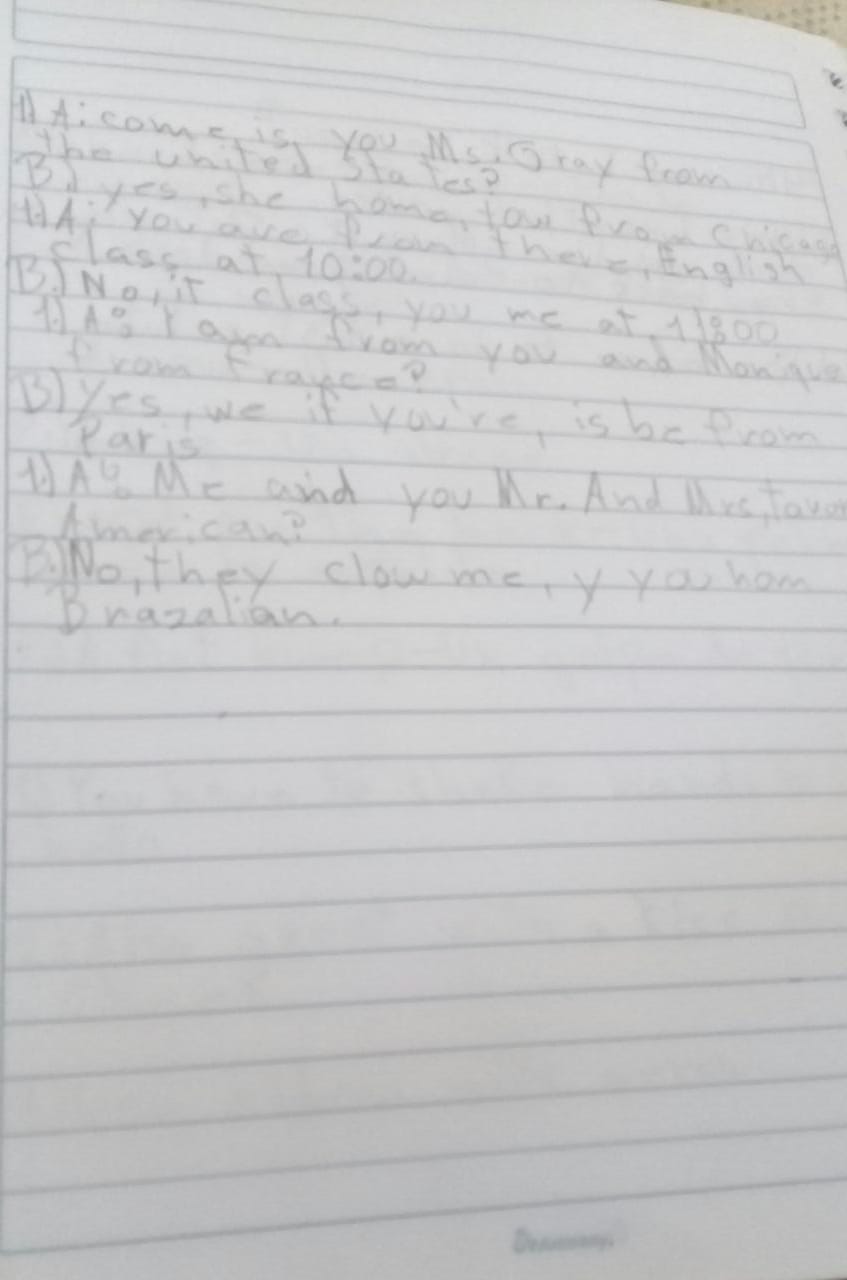 1) A: come is you Ms. Gray from
the united States?
B.) yes, she home, tow from Chicago
1.) A: You are from there, English
class at 10:00.
B.) No, it class, you me at 11:00
1.) A: I aym from you and Monique
from France?
B) Yes, we it you're, is be from
Paris
1.) A: Me aind you Mr. And Mrs, Tavor
American?
B.) No, they clow me, y hom
Brazalian.